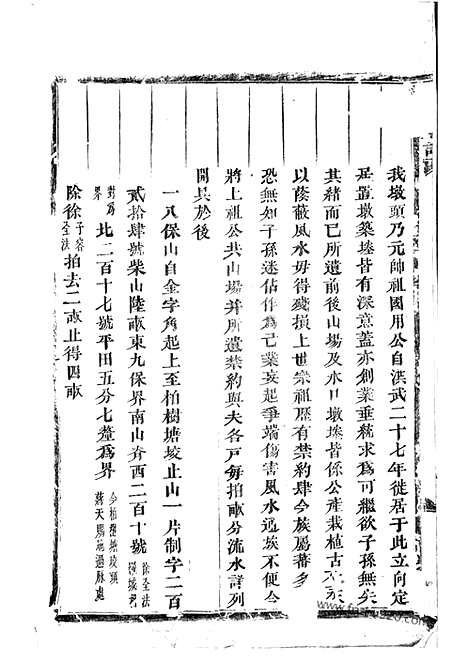 我墩頭乃元帥祖國用公自洪武二十七年徙居于此立向定
基置墩築墺皆有深意蓋亦創業垂統求爲可繼欲子孫無失
其緒而已所遺前後山塲及水口墩墺皆係公產栽植古木
以蔭蔽風水毋得殘損上世宗祖歷有禁約肆今族屬蕃多
恐無知子孫迷佔作爲己業妄起爭端傷害風水遇族不便今
將上祖公共山塲并所遺禁約與夫各戸每拍畝分流水詳列
開具於後
一八保山自金字角起上至柏樹塘堘止山一片制字二百
貳拾肆號柴山陸畝東九保界南山脊西二百十號
對爲界北二百十七號平田五分七釐爲界
除徐子容全法拍去二畝止得四畝